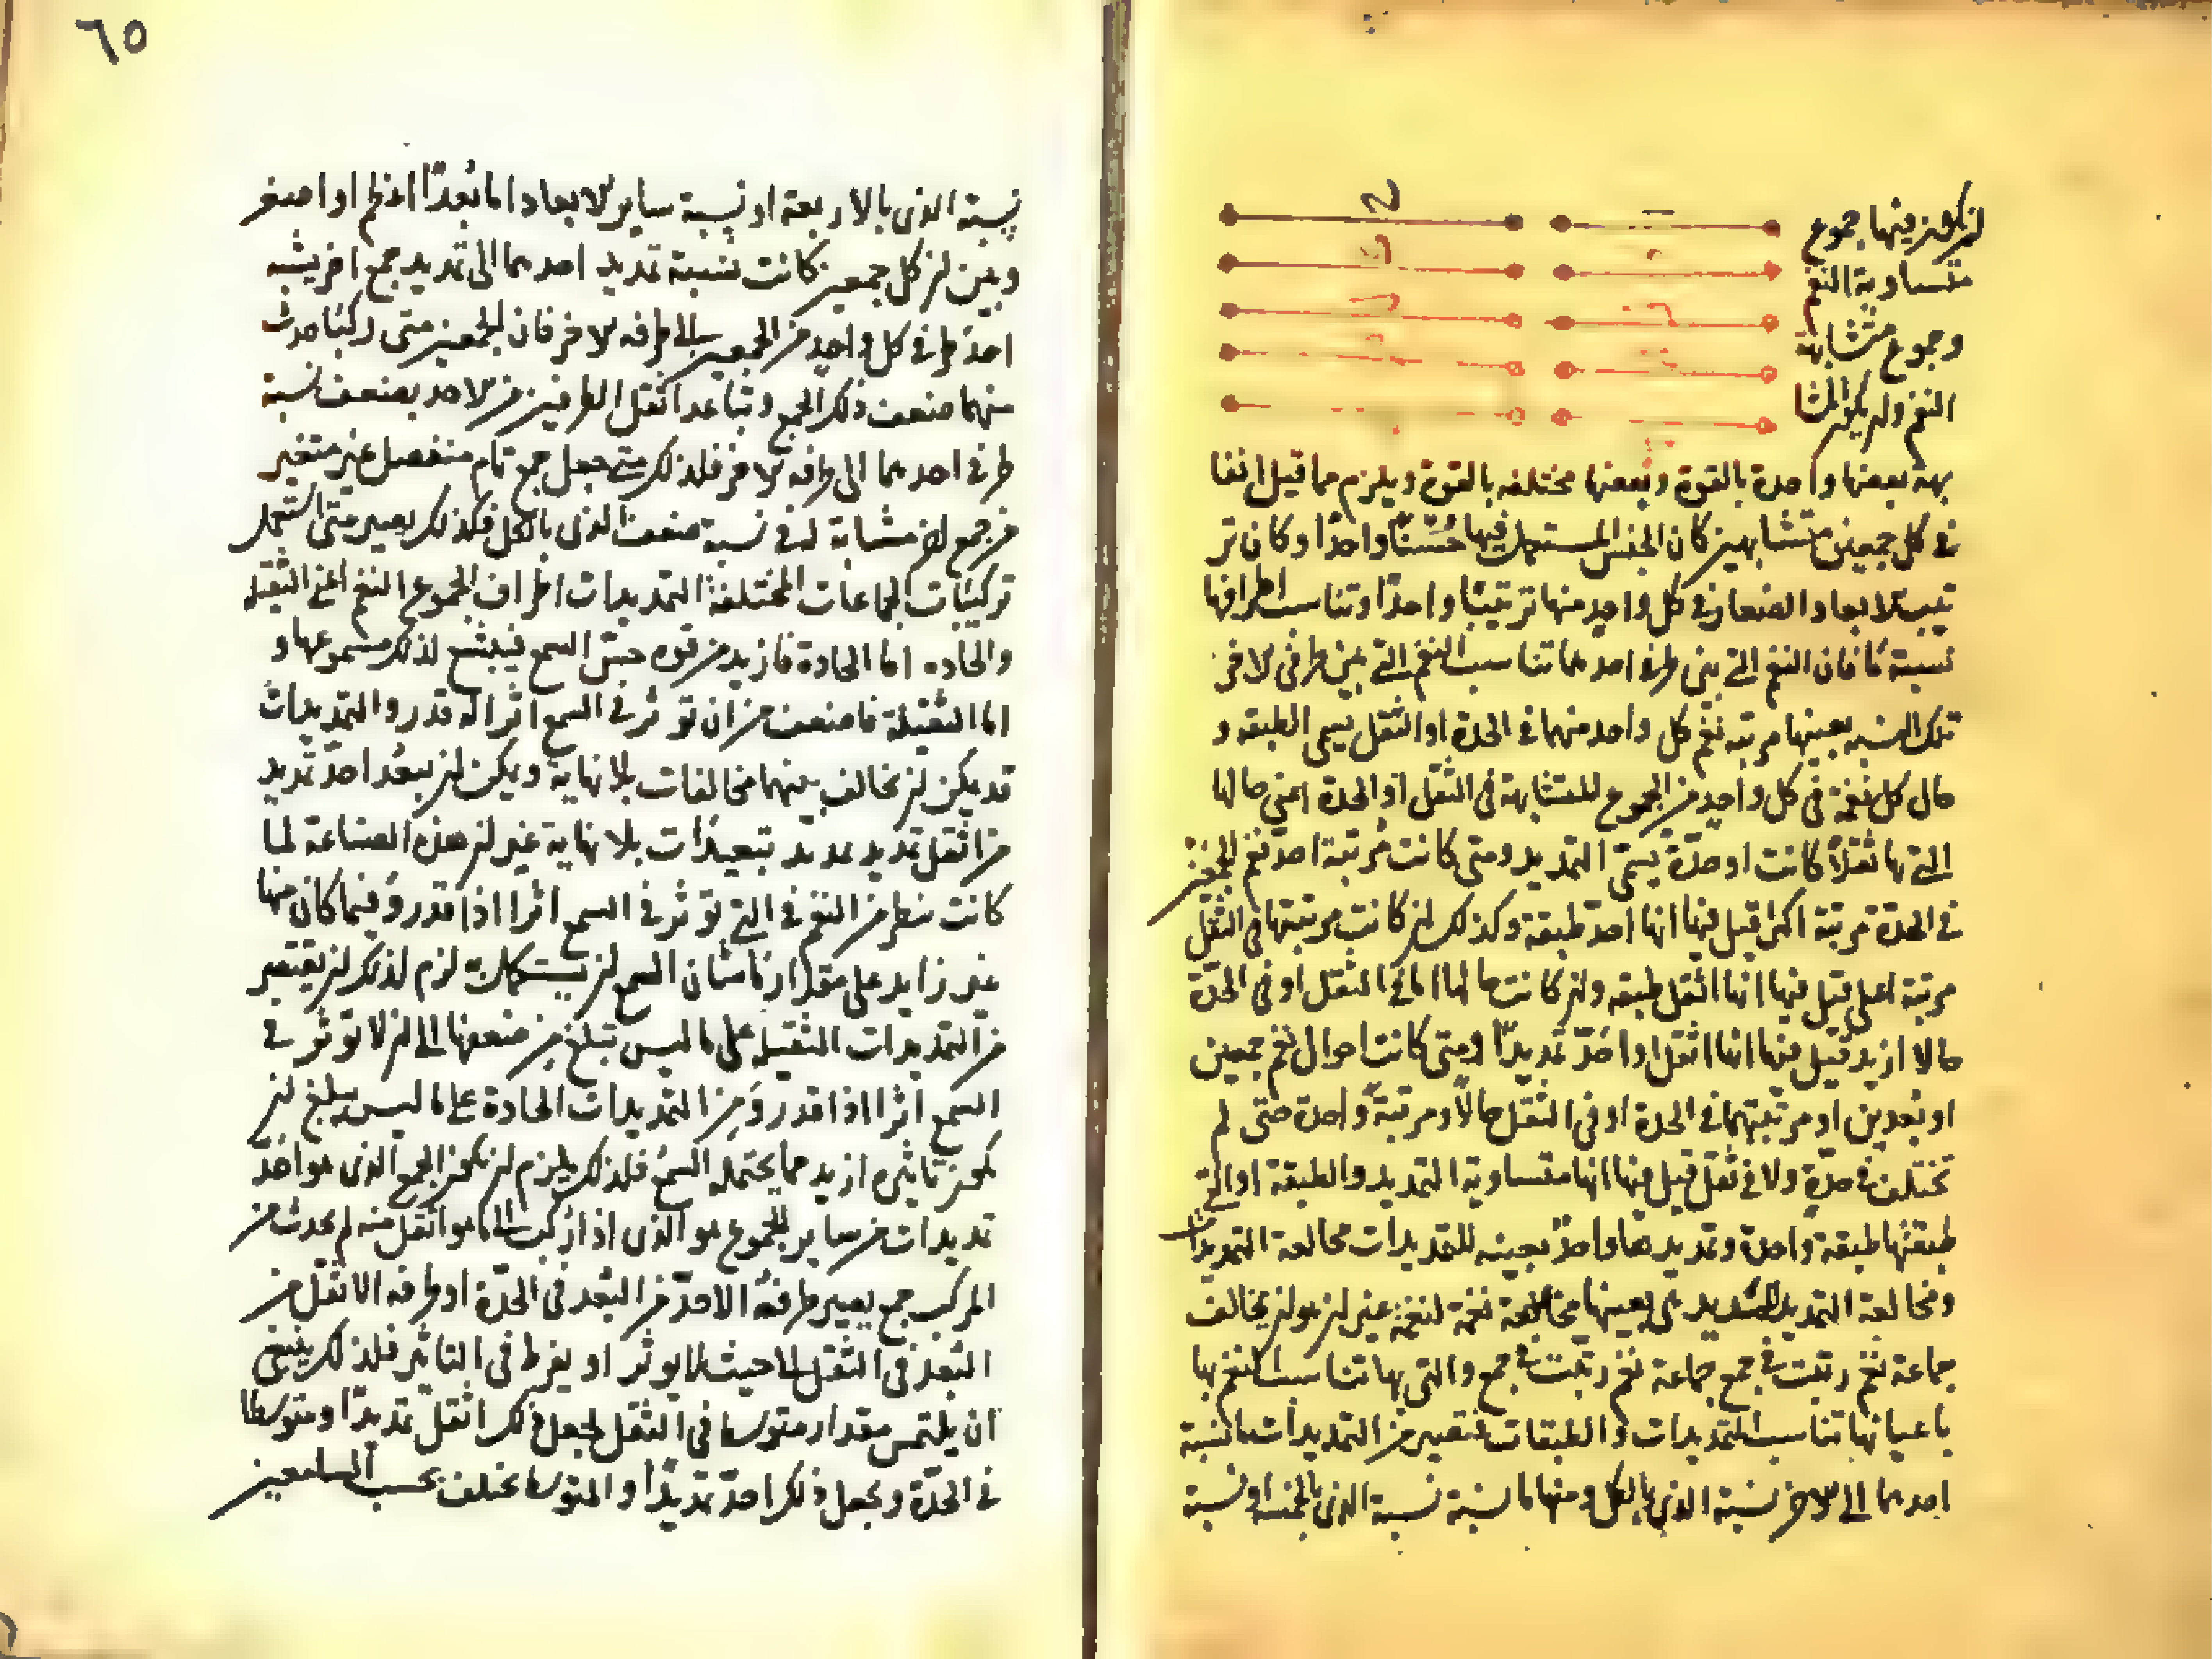 ان يكون فيها جموع
متساوية النغم
وجموع متشابهة
النغم وان يكون المتشا
بهة بعضها واحدة بالقوة وبعضها مختلفه بالقوة ويلزم مما قيل انفا
في كل جمعين متشابهين كان الجنس المستعمل فيها جنسا واحدا وكان تر
تيب الابعاد الصغار في كل واحد منها ترتيبا واحدا وتناسب اطرافها
نسبة ما فان النغم التي بين طرفي احدهما تناسب النغم التي بين طرفي الاخر
تلك النسبه بعينها مرتبة نغم كل واحد منهما في الحدة او الثقل يسمى الطبقه و
حال كل نغمة في كل واحد من الجموع المتشابهة في الثقل او الحدة اعني حالها
التي بها ثقلا كانت او حدة يسمى التمديد ومتى كانت مرتبة احد نغم الجمعين
في الحدة مرتبة اكثر قيل فيها انها احد طبقة وكذلك ان كانت مرتبتها في الثقل
مرتبة اعلى قيل فيها انها اثقل طبقه وان كانت حالها اما في الثقل او في الحدة
حالا ازيد قيل فيها انها اثقل او احد تمديدا ومتى كانت احوال نغم جمعين
او بعدين او مرتبتهما في الحدة او في الثقل حالا ومرتبة واحدة حتى لم
تختلف في حدة ولا في ثقل قيل فيها انها متساوية التمديد والطبقة او التي
طبقتها طبقة واحدة وتمديدها واحد بعينه للتمديدات مخالفة التمديدات
ومخالفة التمديد للتمديد هي بعينها مخالفة نغمة لنغمة غير ان هو ان يخالف
جماعة نغم رتبت في جمع جماعة نغم رتبت في جمع والتي بها تناسب النغم بها
باعيانها تناسب التمديدات والطبقات فتصير من التمديدات ما نسبة
احدهما الى الاخر نسبة الذي بالكل ومنها ما نسبة نسبة الذي بالخمسة او نسبة
٦٥
نسبة الذي بالاربعة او نسبة ساير الابعاد اما بعدا اعظم او اصغر
وبين ان كل جمعين كانت نسبة تمديد احدهما الى تمديد جمع اخر نسبة
احد طرفي كل واحد من الجمعين الى طرفه الاخر فان الجمعين متى ركبا حدث
منهما ضعف ذلك الجمع وتباعد اثقل الطرفين من الاحد بضعف نسبة
طرفي احدهما الى طرفه الاخر فلذلك متى جعل جمع تام منفصل غير متغير
من جمع اخر مشابة له في نسبة ضعف الذي بالكل فكذلك يصير متى استعمل
تركيبات الجماعات المختلفة التمديدات اطراف الجموع النغم اعني الثقيلة
والحاده اما الحادة فازيد من قوه حس السمع فيبشع لذلك مسموعها و
اما الثقيلة فاضعف من ان توثر في السمع اثرا له قدر والتمديدات
قد يمكن ان تخالف بينهما مخالفات بلا نهاية ويمكن ان يبعد احد تمديد
من اثقل تمديد تمديد تبعيدات بلا نهاية غير ان هذه الصناعة لما
كانت تنظر من النغم في التي توثر في السمع اثرا اذا قدر وفيما كان منها
غير زايد على مقدار ما شان السمع ان يستكمل به لزم لذلك ان يقتصر
من التمديدات الثقيلة على ما ليس تبلغ من ضعفها الى ان لا توثر في
السمع اثرا اذا قدر ومن التمديدات الحادة على ما ليس يبلغ ان
يكون تاثيره ازيد مما يحتمله السمع فلذلك يلزم ان يكون الجمع الذي هو احد
تمديدات من ساير الجموع هو الذي اذا ركب الى ما هو اثقل منه لم يحدث من
المركب جمع يصير طرفه الاحد من البعد في الحدة او طرفه الاثقل من
البعد في الثقل الى حيث لا يوثر او يفرط في التاثير فلذلك ينبغي
ان يلتمس مقدار متوسط في الثقل يجعل ذلك اثقل تمديدا ومتوسطا
في الحدة ويجعل ذلك احد تمديدا والمتوسط مختلف بحسب السامعين